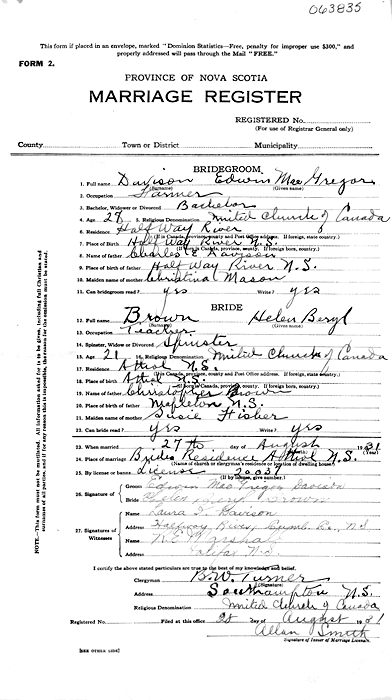 063835
This form if placed in an envelope, marked "Dominion Statistics—Free, penalty for improper use $300," and
properly addressed will pass through the Mail "FREE."
FORM 2.
PROVINCE OF NOVA SCOTIA
MARRIAGE REGISTER
REGISTERED No.
(For use of Registrar General only)
County Town or District Municipality
BRIDEGROOM
1. Full name Davison Edwin MacGregor
(Surname) (Given name)
2. Occupation Farmer
3. Bachelor, Widower or Divorced Bachelor
4. Age 27 5. Religious Denomination United Church of Canada
6. Residence Half Way River
7. Place of Birth Half Way River N.S.
8. Name of father Charles E Davison
9. Place of birth of father Half Way River N.S.
10. Maiden name of mother Christina Mason
11. Can bridegroom read? yes Write? yes
BRIDE
12. Full name Brown Helen Beryl
(Surname) (Given name)
13. Occupation Teacher
14. Spinster, Widow or Divorced Spinster
15. Age 21 16. Religious Denomination United Church of Canada
17. Residence Athol N.S.
18. Place of birth Athol N.S.
19. Name of father Christopher Brown
20. Place of birth of father Mapleton N.S.
21. Maiden name of mother Susie Fisher
22. Can bride read? yes Write? yes
23. When married 27th day of August 1931
(Year)
24. Place of marriage Brides Residence Athol N.S.
(Name of church or clergyman's residence or location of dwelling house)
25. By license or banns License 20037
(If by license, give number.)
26. Signature of
Groom Edwin MacGregor Davison
Bride Helen Beryl Brown
27. Signature of Witnesses
Name Laura I. Davison
Address Halfway River, Cumb. Co., N.S.
Name Marshall
Address Halifax N.S.
I certify the above stated particulars are true to the best of my knowledge and belief.
Clergyman B.W. Turner
(Signature)
Address Southampton N.S.
Religious Denomination United Church of Canada
Registered No. Filed at this office 28 day of August 1931
Allan Smith
Signature of Issuer of Marriage Licenses.
[SEE OTHER SIDE]
NOTE.—This form must not be mutilated. All information asked for is to be given, including full Christian and
surnames of all parties, and if for any reason this is impossible, the reason for the omission must be stated.